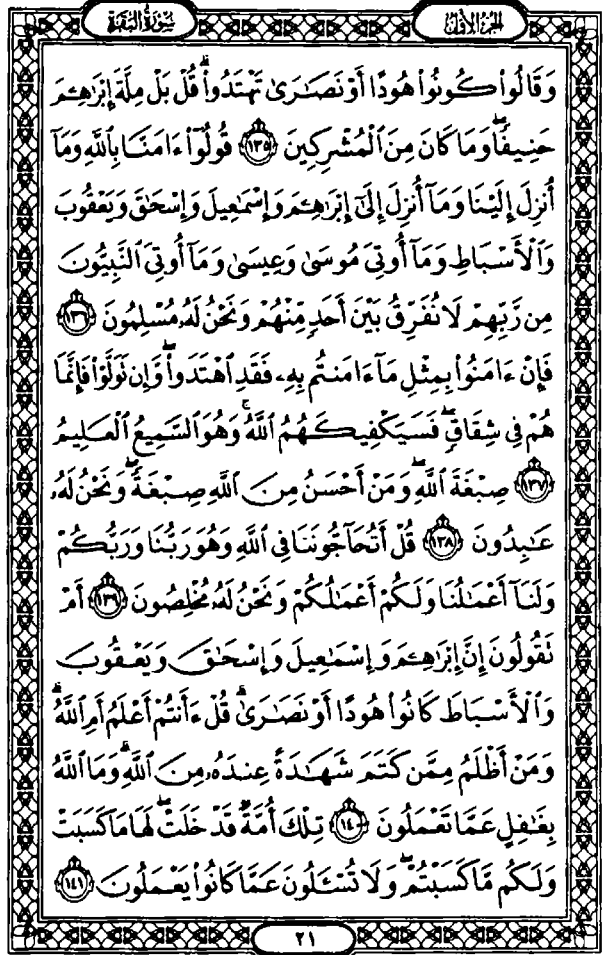 الجزء الأول سورة البقرة
وَقَالُوا۟ كُونُوا۟ هُودًا أَوْ نَصَـٰرَىٰ تَهْتَدُوا۟ ۗ قُلْ بَلْ مِلَّةَ إِبْرَٰهِـۧمَ
حَنِيفًا ۖ وَمَا كَانَ مِنَ ٱلْمُشْرِكِينَ ١٣٥ قُولُوٓا۟ ءَامَنَّا بِٱللَّهِ وَمَآ
أُنزِلَ إِلَيْنَا وَمَآ أُنزِلَ إِلَىٰٓ إِبْرَٰهِـۧمَ وَإِسْمَـٰعِيلَ وَإِسْحَـٰقَ وَيَعْقُوبَ
وَٱلْأَسْبَاطِ وَمَآ أُوتِىَ مُوسَىٰ وَعِيسَىٰ وَمَآ أُوتِىَ ٱلنَّبِيُّونَ
مِن رَّبِّهِمْ لَا نُفَرِّقُ بَيْنَ أَحَدٍ مِّنْهُمْ وَنَحْنُ لَهُۥ مُسْلِمُونَ ١٣٦
فَإِنْ ءَامَنُوا۟ بِمِثْلِ مَآ ءَامَنتُم بِهِۦ فَقَدِ ٱهْتَدَوا۟ ۖ وَّإِن تَوَلَّوْا۟ فَإِنَّمَا
هُمْ فِى شِقَاقٍ ۖ فَسَيَكْفِيكَهُمُ ٱللَّهُ ۚ وَهُوَ ٱلسَّمِيعُ ٱلْعَلِيمُ
١٣٧ صِبْغَةَ ٱللَّهِ ۖ وَمَنْ أَحْسَنُ مِنَ ٱللَّهِ صِبْغَةً ۖ وَنَحْنُ لَهُۥ
عَـٰبِدُونَ ١٣٨ قُلْ أَتُحَآجُّونَنَا فِى ٱللَّهِ وَهُوَ رَبُّنَا وَرَبُّكُمْ
وَلَنَآ أَعْمَـٰلُنَا وَلَكُمْ أَعْمَـٰلُكُمْ وَنَحْنُ لَهُۥ مُخْلِصُونَ ١٣٩ أَمْ
تَقُولُونَ إِنَّ إِبْرَٰهِـۧمَ وَإِسْمَـٰعِيلَ وَإِسْحَـٰقَ وَيَعْقُوبَ
وَٱلْأَسْبَاطَ كَانُوا۟ هُودًا أَوْ نَصَـٰرَىٰ ۗ قُلْ ءَأَنتُمْ أَعْلَمُ أَمِ ٱللَّهُ ۗ
وَمَنْ أَظْلَمُ مِمَّن كَتَمَ شَهَـٰدَةً عِندَهُۥ مِنَ ٱللَّهِ ۗ وَمَا ٱللَّهُ
بِغَـٰفِلٍ عَمَّا تَعْمَلُونَ ١٤٠ تِلْكَ أُمَّةٌ قَدْ خَلَتْ ۖ لَهَا مَا كَسَبَتْ
وَلَكُم مَّا كَسَبْتُمْ ۖ وَلَا تُسْـَٔلُونَ عَمَّا كَانُوا۟ يَعْمَلُونَ ١٤١
٢١